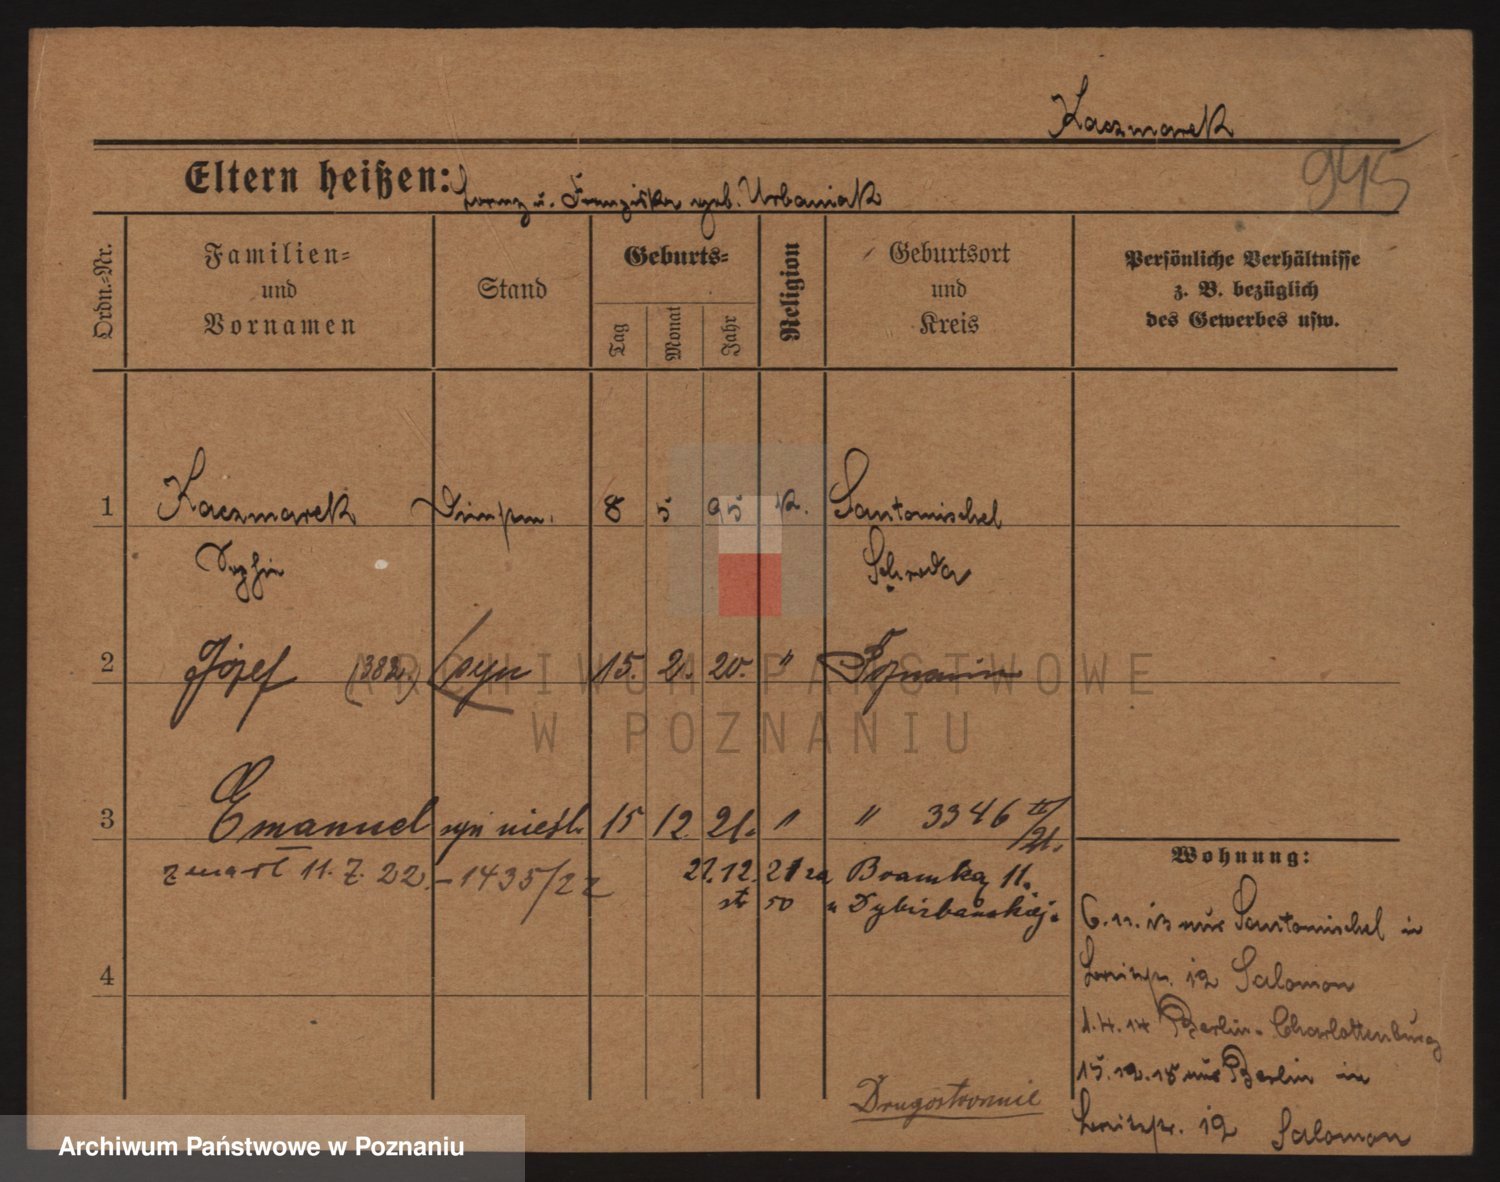 Kaczmarek
945
Eltern heißen: Lorenz u. Franziska geb. Urbaniak
Ordn.-Nr.
Familien-
und
Vornamen
Stand
Geburts-
Tag
Monat
Jahr
Religion
Geburtsort
und
Kreis
Persönliche Verhältnisse
z. B. bezüglich
des Gewerbes usw.
1 Kaczmarek 8 5 95 k. Santomischel
Sophie Schroda
2 Józef (382) syn 15. 2. 20. " Poznanin
3 Emanuel syn nieśl. 15 12. 21. " " 3346 IV/21.
zmarł 11. 7. 22. – 1435/22 21. 12. 21 za Bramką 11.
50 " Dąbrowskiej.
Wohnung:
6. 11. 13 aus Santomischel in
12 Salomon
1. 4. 14 Berlin-Charlottenburg
4
15. 12. 18 aus Berlin in
12 Salomon
Drugostronnie
ARCHIWUM PAŃSTWOWE
W POZNANIU
Archiwum Państwowe w Poznaniu